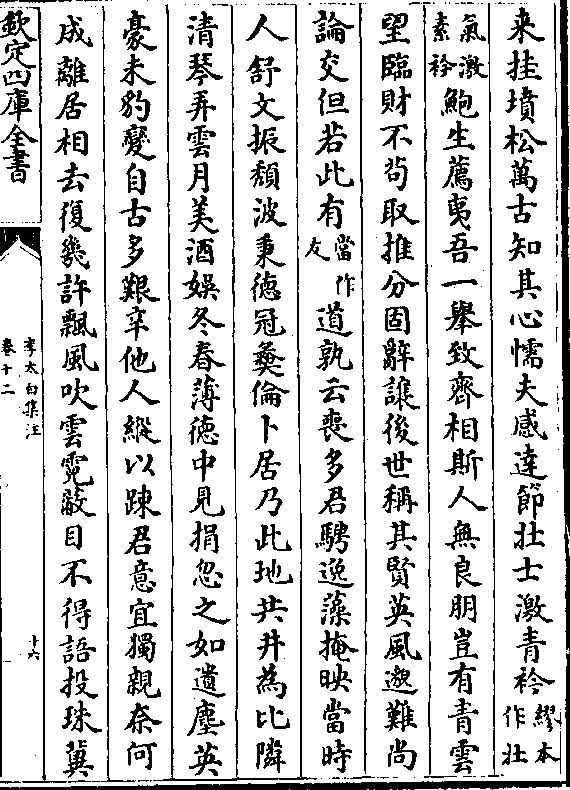 来挂墳松萬古知其心懦夫感達節壯士激青衿繆本作壯
氣激素衿鮑生薦夷吾一舉致齊相斯人無良朋豈有青雲
望臨財不苟取推分固辭讓後世稱其賢英風邈難尚
論交但若此有當作友道孰云喪多君騁逸藻掩映當時
人舒文振頽波秉徳冠彜倫卜居乃此地共井為比隣
清琴弄雲月美酒娯冬春薄徳中見捐忽之如遺塵英
豪未豹變自古多艱辛他人縱以踈君意宜獨親奈何
成離居相去復幾許飄風吹雲霓蔽目不得語投珠冀
欽定四庫全書
李太白集注
卷十二
十六